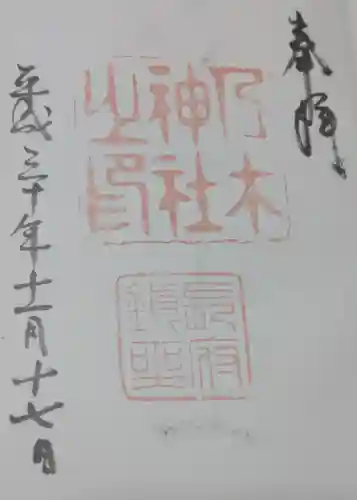 奉拝
乃木
神社
之印
長府
鎮聖
平成三十年十一月十七日